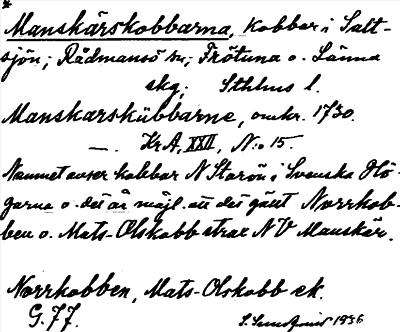 *
Manskärskobbarna, kobbar i Salt-
sjön; Rådmansö sn; Frötuna o. Länna
skg; Sthlms l.
Manskarskübbarne, omkr. 1730.
—. KrA, XXII, N:o 15.
Namnet avser kobbar N Starön i Svenska Hö-
garna o. det är möjl. att det gällt Norrkob-
ben o. Mats-Olskobb strax NV Manskär.
Norrkobben, Mats-Olskobb ek.
G. 77.
1936